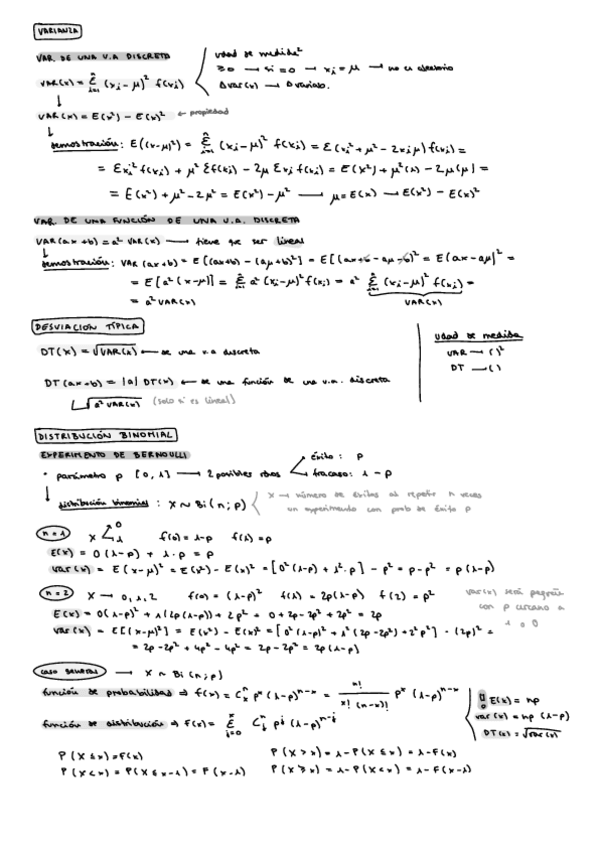 VARIANZA
VAR. DE UNA V.A DISCRETA
Udad de medida²
≥0 → si =0 → xᵢ = μ → no es aleatorio
Δ var(x) → Δ variab.
VAR(x) = Σⁿᵢ₌₁ (xᵢ-μ)² f(xᵢ)
↓
VAR(x) = E(x²) - E(x)² ← propiedad
↓
demostración: E((x-μ)²) = Σⁿᵢ₌₁ (xᵢ-μ)² f(xᵢ) = Σ(xᵢ² + μ² - 2xᵢμ) f(xᵢ) =
= Σxᵢ² f(xᵢ) + μ² Σf(xᵢ) - 2μ Σxᵢ f(xᵢ) = E(x²) + μ²(1) - 2μ(μ) =
= E(x²) + μ² - 2μ² = E(x²) - μ² → μ = E(x) → E(x²) - E(x)²
VAR. DE UNA FUNCIÓN DE UNA V.A. DISCRETA
VAR(ax+b) = a² VAR(x) → tiene que ser lineal
↓
demostración: VAR(ax+b) = E[((ax+b) - (aμ+b))²] = E[(ax+b - aμ - b)² = E(ax-aμ)² =
= E[a²(x-μ)] = Σⁿᵢ₌₁ a²(xᵢ-μ)² f(xᵢ) = a² Σⁿᵢ₌₁ (xᵢ-μ)² f(xᵢ) =
= a² VAR(x)
VAR(x)
DESVIACIÓN TÍPICA
DT(x) = √VAR(x) ← de una v.a discreta
DT(ax+b) = |a| DT(x) ← de una función de una v.a. discreta
√a² VAR(x) (solo si es lineal)
Udad de medida
VAR → ( )²
DT → ( )
DISTRIBUCIÓN BINOMIAL
EXPERIMENTO DE BERNOULLI
• parámetro p [0,1] → 2 posibles rdos
éxito: p
fracaso: 1-p
distribución binomial: X ~ Bi(n;p)
X → número de éxitos al repetir n veces
un experimento con prob de éxito p
n=1
X 0 1 f(0) = 1-p f(1) = p
E(x) = 0(1-p) + 1·p = p
var(x) = E(x-μ)² = E(x²) - E(x)² = [0²(1-p) + 1²·p] - p² = p-p² = p(1-p)
n=2
X → 0,1,2 f(0) = (1-p)² f(1) = 2p(1-p) f(2) = p²
E(x) = 0(1-p)² + 1(2p(1-p)) + 2p² = 0+2p-2p²+2p² = 2p
var(x) = E[(x-μ)²] = E(x²) - E(x)² = [0²(1-p)² + 1²(2p-2p²) + 2²p²] - (2p)² =
= 2p-2p² + 4p² - 4p² = 2p-2p² = 2p(1-p)
var(x) será pequeña
con p cercano a
1 o 0
caso general → X ~ Bi(n;p)
función de probabilidad ⇒ f(x) = Cₓⁿ pˣ (1-p)ⁿ⁻ˣ = n! / x!(n-x)! pˣ (1-p)ⁿ⁻ˣ
función de distribución ⇒ F(x) = Σˣⱼ₌₀ Cⱼⁿ pʲ (1-p)ⁿ⁻ʲ
E(x) = np
var(x) = np(1-p)
DT(x) = √var(x)
P(X≤x) = F(x)
P(X<x) = P(X≤x-1) = F(x-1)
P(X>x) = 1-P(X≤x) = 1-F(x)
P(X≥x) = 1-P(X<x) = 1-F(x-1)